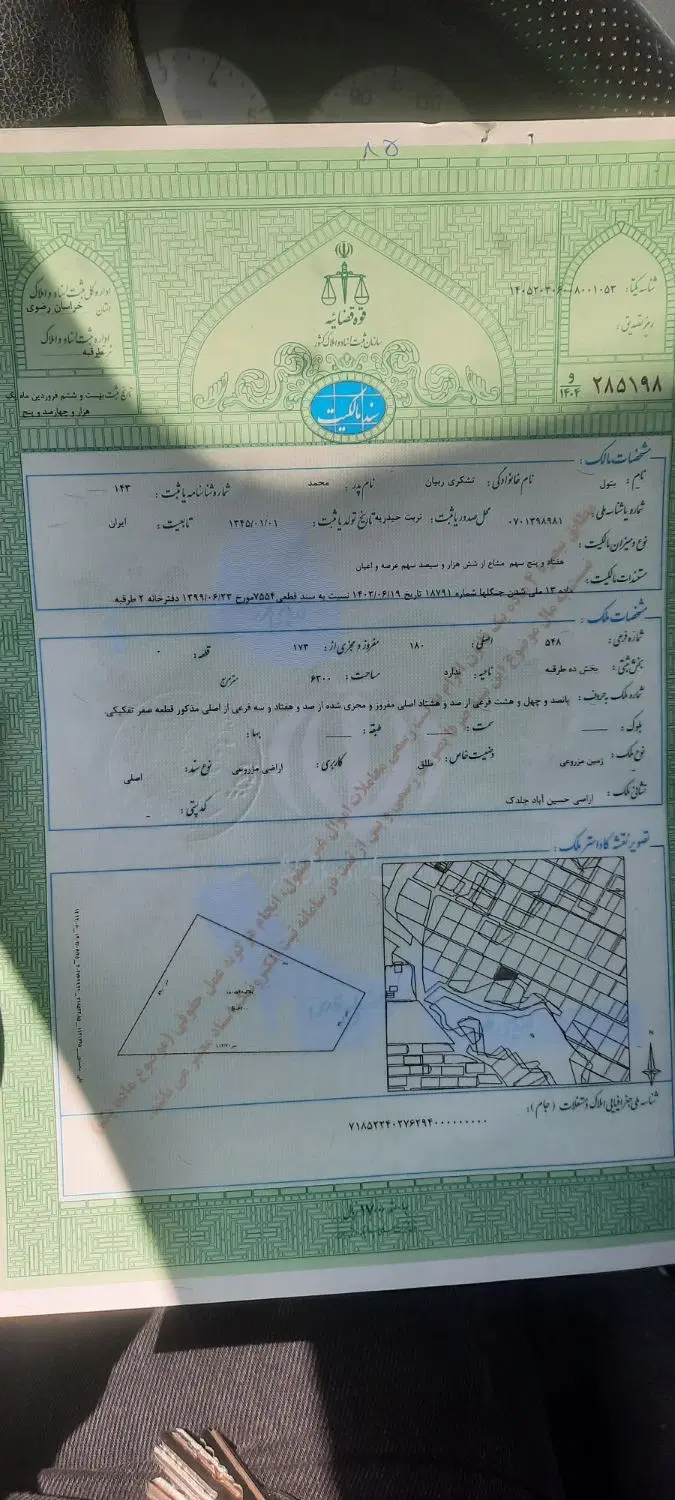 ۸۵
قوه قضائیه
سازمان ثبت اسناد و املاک کشور
سند مالکیت
اداره کل ثبت اسناد و املاک
استان خراسان رضوی
اداره ثبت اسناد و املاک
طرقبه
تاریخ ثبت: بیست و ششم فروردین ماه یک
هزار و چهارصد و پنج
شناسه یکتا: ۱۴۰۵۲۰۳۰۶۰۰۸۰۰۱۰۵۳
رمز تصدیق:
۲۸۵۱۹۸ و ۱۴۰۴
مشخصات مالک:
نام: بتول نام خانوادگی: تشکری ربیان نام پدر: محمد شماره شناسنامه یا ثبت: ۱۴۳
شماره یا شناسه ملی: ۰۷۰۱۳۹۸۹۸۱ محل صدور یا ثبت: تربت حیدریه تاریخ تولد یا ثبت: ۱۳۴۵/۰۱/۰۱ تابعیت: ایران
نوع و میزان مالکیت:
هفتاد و پنج سهم مشاع از شش هزار و سیصد سهم عرصه و اعیان
مستندات مالکیت:
ماده ۱۳ ملی شدن جنگلها شماره ۱۸۷۹۱ تاریخ ۱۴۰۲/۰۶/۱۹ نسبت به سند قطعی ۷۵۵۴ مورخ ۱۳۹۹/۰۶/۲۲ دفترخانه ۲ طرقبه
مشخصات ملک:
شماره فرعی: ۵۴۸ اصلی: ۱۸۰ مفروز و مجزی از: ۱۷۳ قطعه: -
بخش ثبتی: بخش ده طرقبه ناحیه: ندارد مساحت: ۶۳۰۰ مترمربع
شماره ملک به حروف: پانصد و چهل و هشت فرعی از صد و هشتاد اصلی مفروز و مجزی شده از صد و هفتاد و سه فرعی از اصلی مذکور قطعه صفر تفکیکی
بلوک: سمت: طبقه: بها:
نوع ملک: زمین مزروعی وضعیت خاص: طلق کاربری: اراضی مزروعی نوع سند: اصلی
نشانی ملک: اراضی حسین آباد جلدک کدپستی: -
تصویر نقشه کاداستر ملک:
N
شناسه ملی جغرافیایی املاک و مستغلات (جام):
۷۱۸۵۲۲۴۰۲۷۶۲۹۴۰۰۰۰۰۰۰۰۰